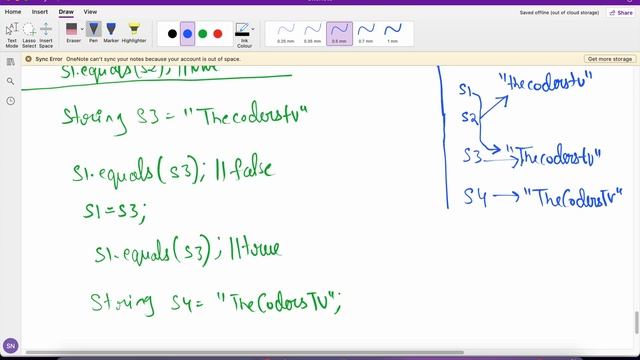 OneNote
Saved offline (out of cloud storage)
Home Draw View
Text Mode
Lasso Select
Insert Space
Eraser Pen Marker Highlighter
0.25 mm 0.35 mm 0.5 mm 0.7 mm 1 mm
Ink Colour
Sync Error OneNote can't sync your notes because your account is out of space.
Get more storage
S1.equals(S2); //true
String S3 = "Thecoderstv"
S1.equals(S3); //false
S1=S3;
S1.equals(S3); //true
String S4 = "TheCodersTV";
S1
"thecoderstv"
S2
S3 "Thecoderstv"
S4 "TheCodersTV"
SN